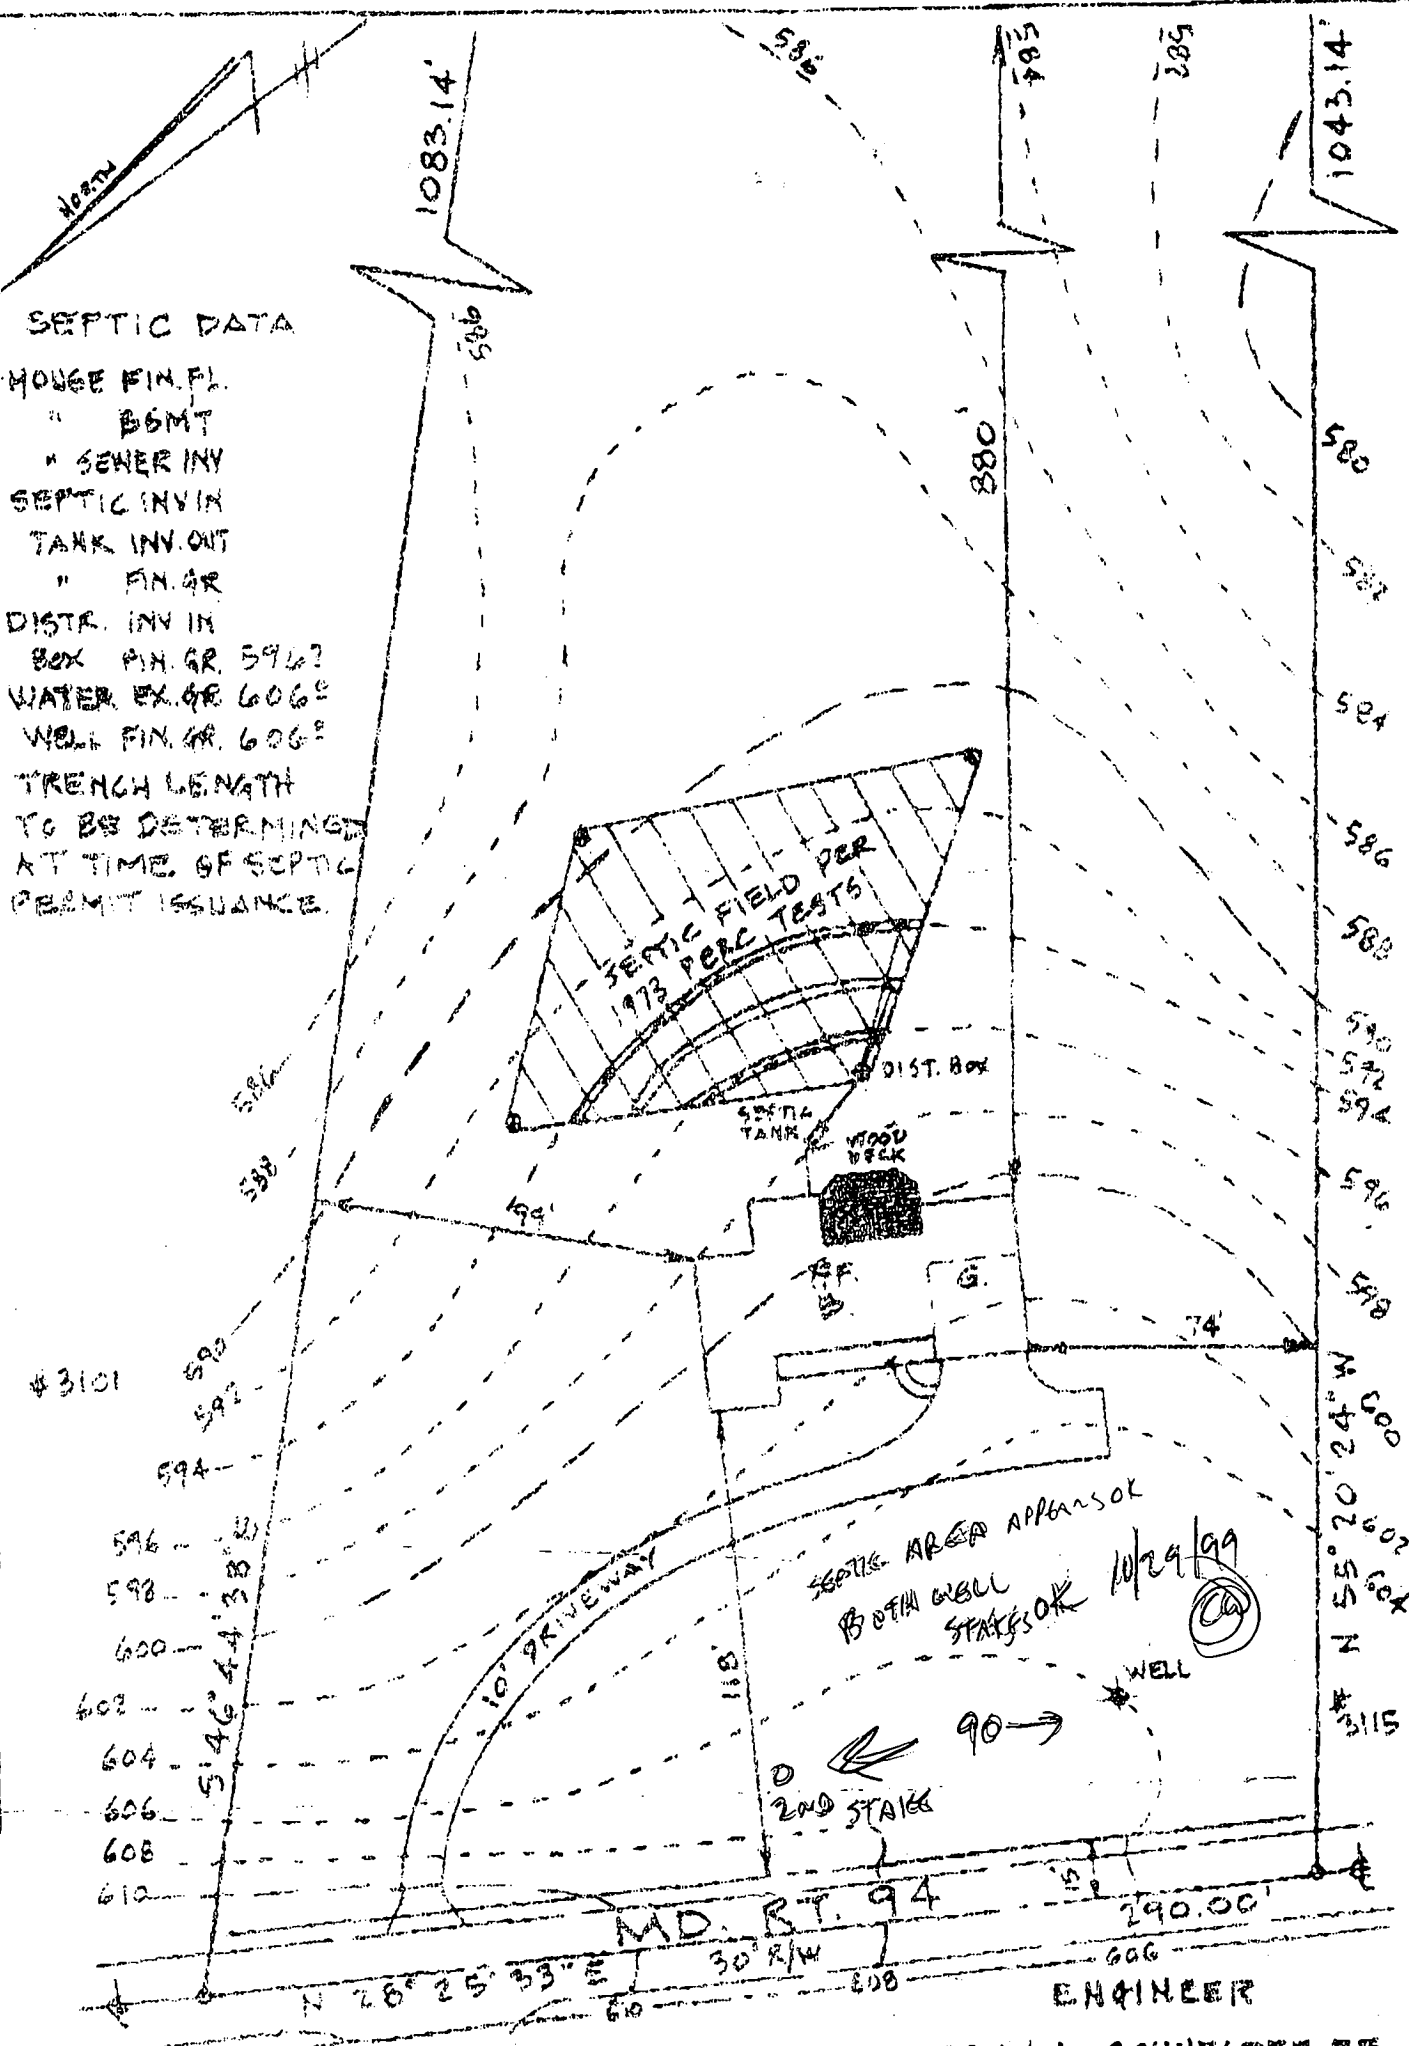 586
584
582
1083.14'
1043.14'
NORTH
SEPTIC DATA
HOUSE FIN. FL.
" BSMT
" SEWER INV
SEPTIC INV IN
TANK INV. OUT
" FIN. GR
DISTR. INV IN
BOX FIN. GR. 596
WATER EX. GR 606
WELL FIN. GR. 606
TRENCH LENGTH
TO BE DETERMINED
AT TIME OF SEPTIC
PERMIT ISSUANCE.
586
880'
580
582
584
586
588
590
592
594
596
598
600
602
604
SEPTIC FIELD PER
1973 PERC TESTS
DIST. BOX
SEPTIC
TANK
WOOD
DECK
99'
F.F.
B.
G.
74'
# 3101
586
588
590
592
594
596
598
600
602
604
606
608
610
S 46° 44' 38" E
N 55° 20' 24" W
# 3115
10' DRIVEWAY
118'
SEPTIC AREA APPEARS OK
BOTH WELL
STAKES OK 10/29/99
WELL
90
2ND STAKE
15'
MD. RT. 94
290.00'
N 28° 25' 33" E
30' R/W
610
608
606
ENGINEER